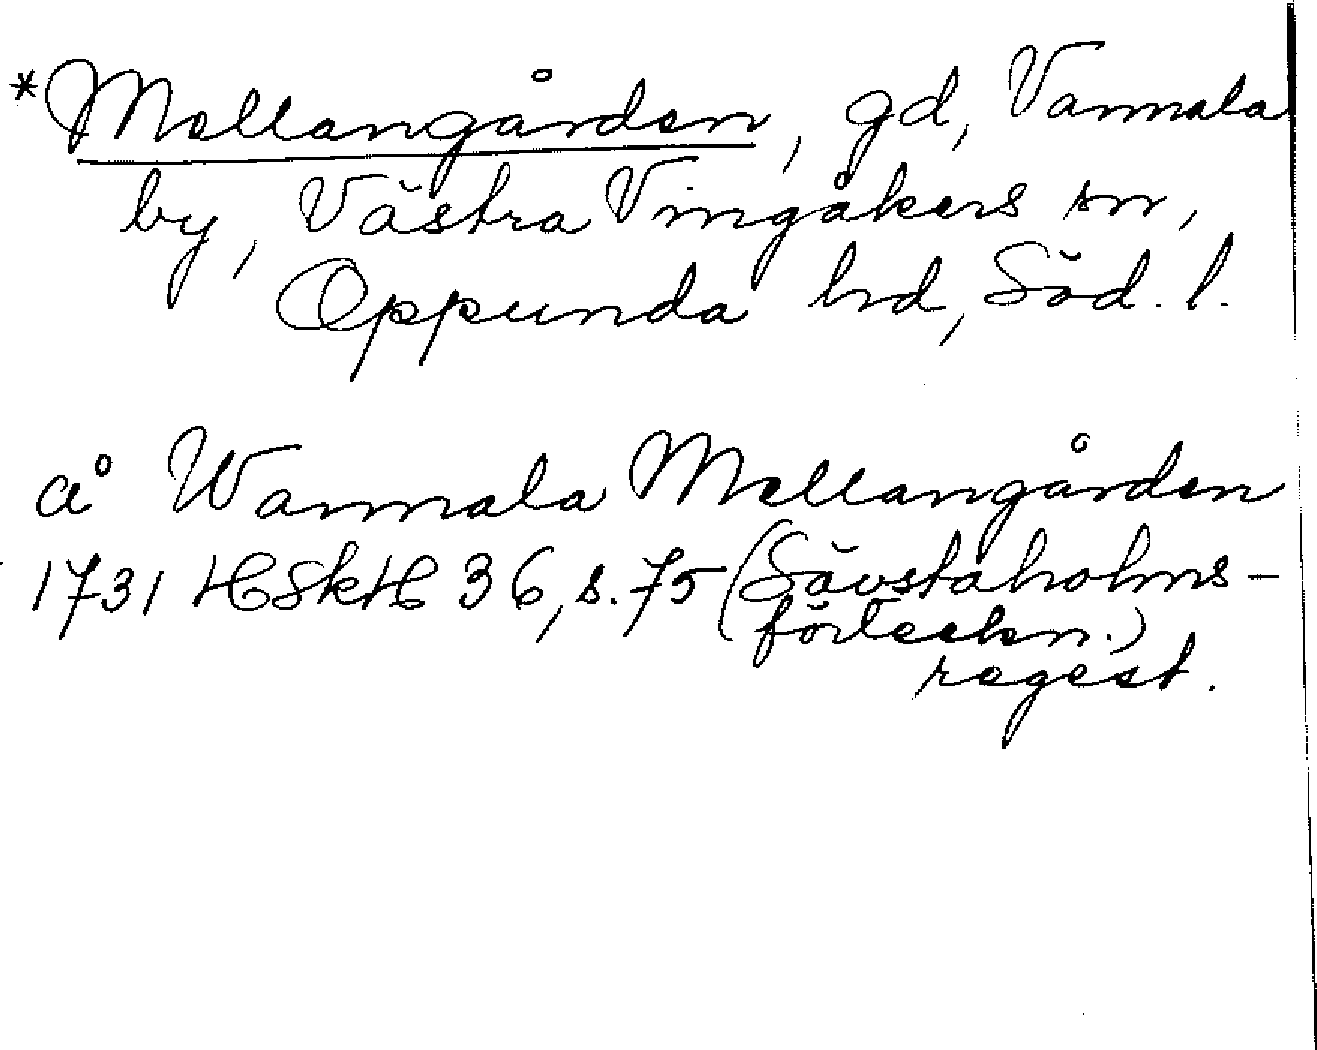 *Mellangården, gd, Vannala
by, Västra Vingåkers sn,
Oppunda hd, Söd. l.
å Wannala Mellangården
1731 HSkH 36, s. 75 (Sävstaholms-
förteckn.)
regest.